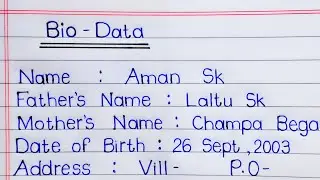 Bio - Data
Name : Aman Sk
Father's Name : Laltu Sk
Mother's Name : Champa Bega
Date of Birth : 26 Sept, 2003
Address : Vill- P.O-